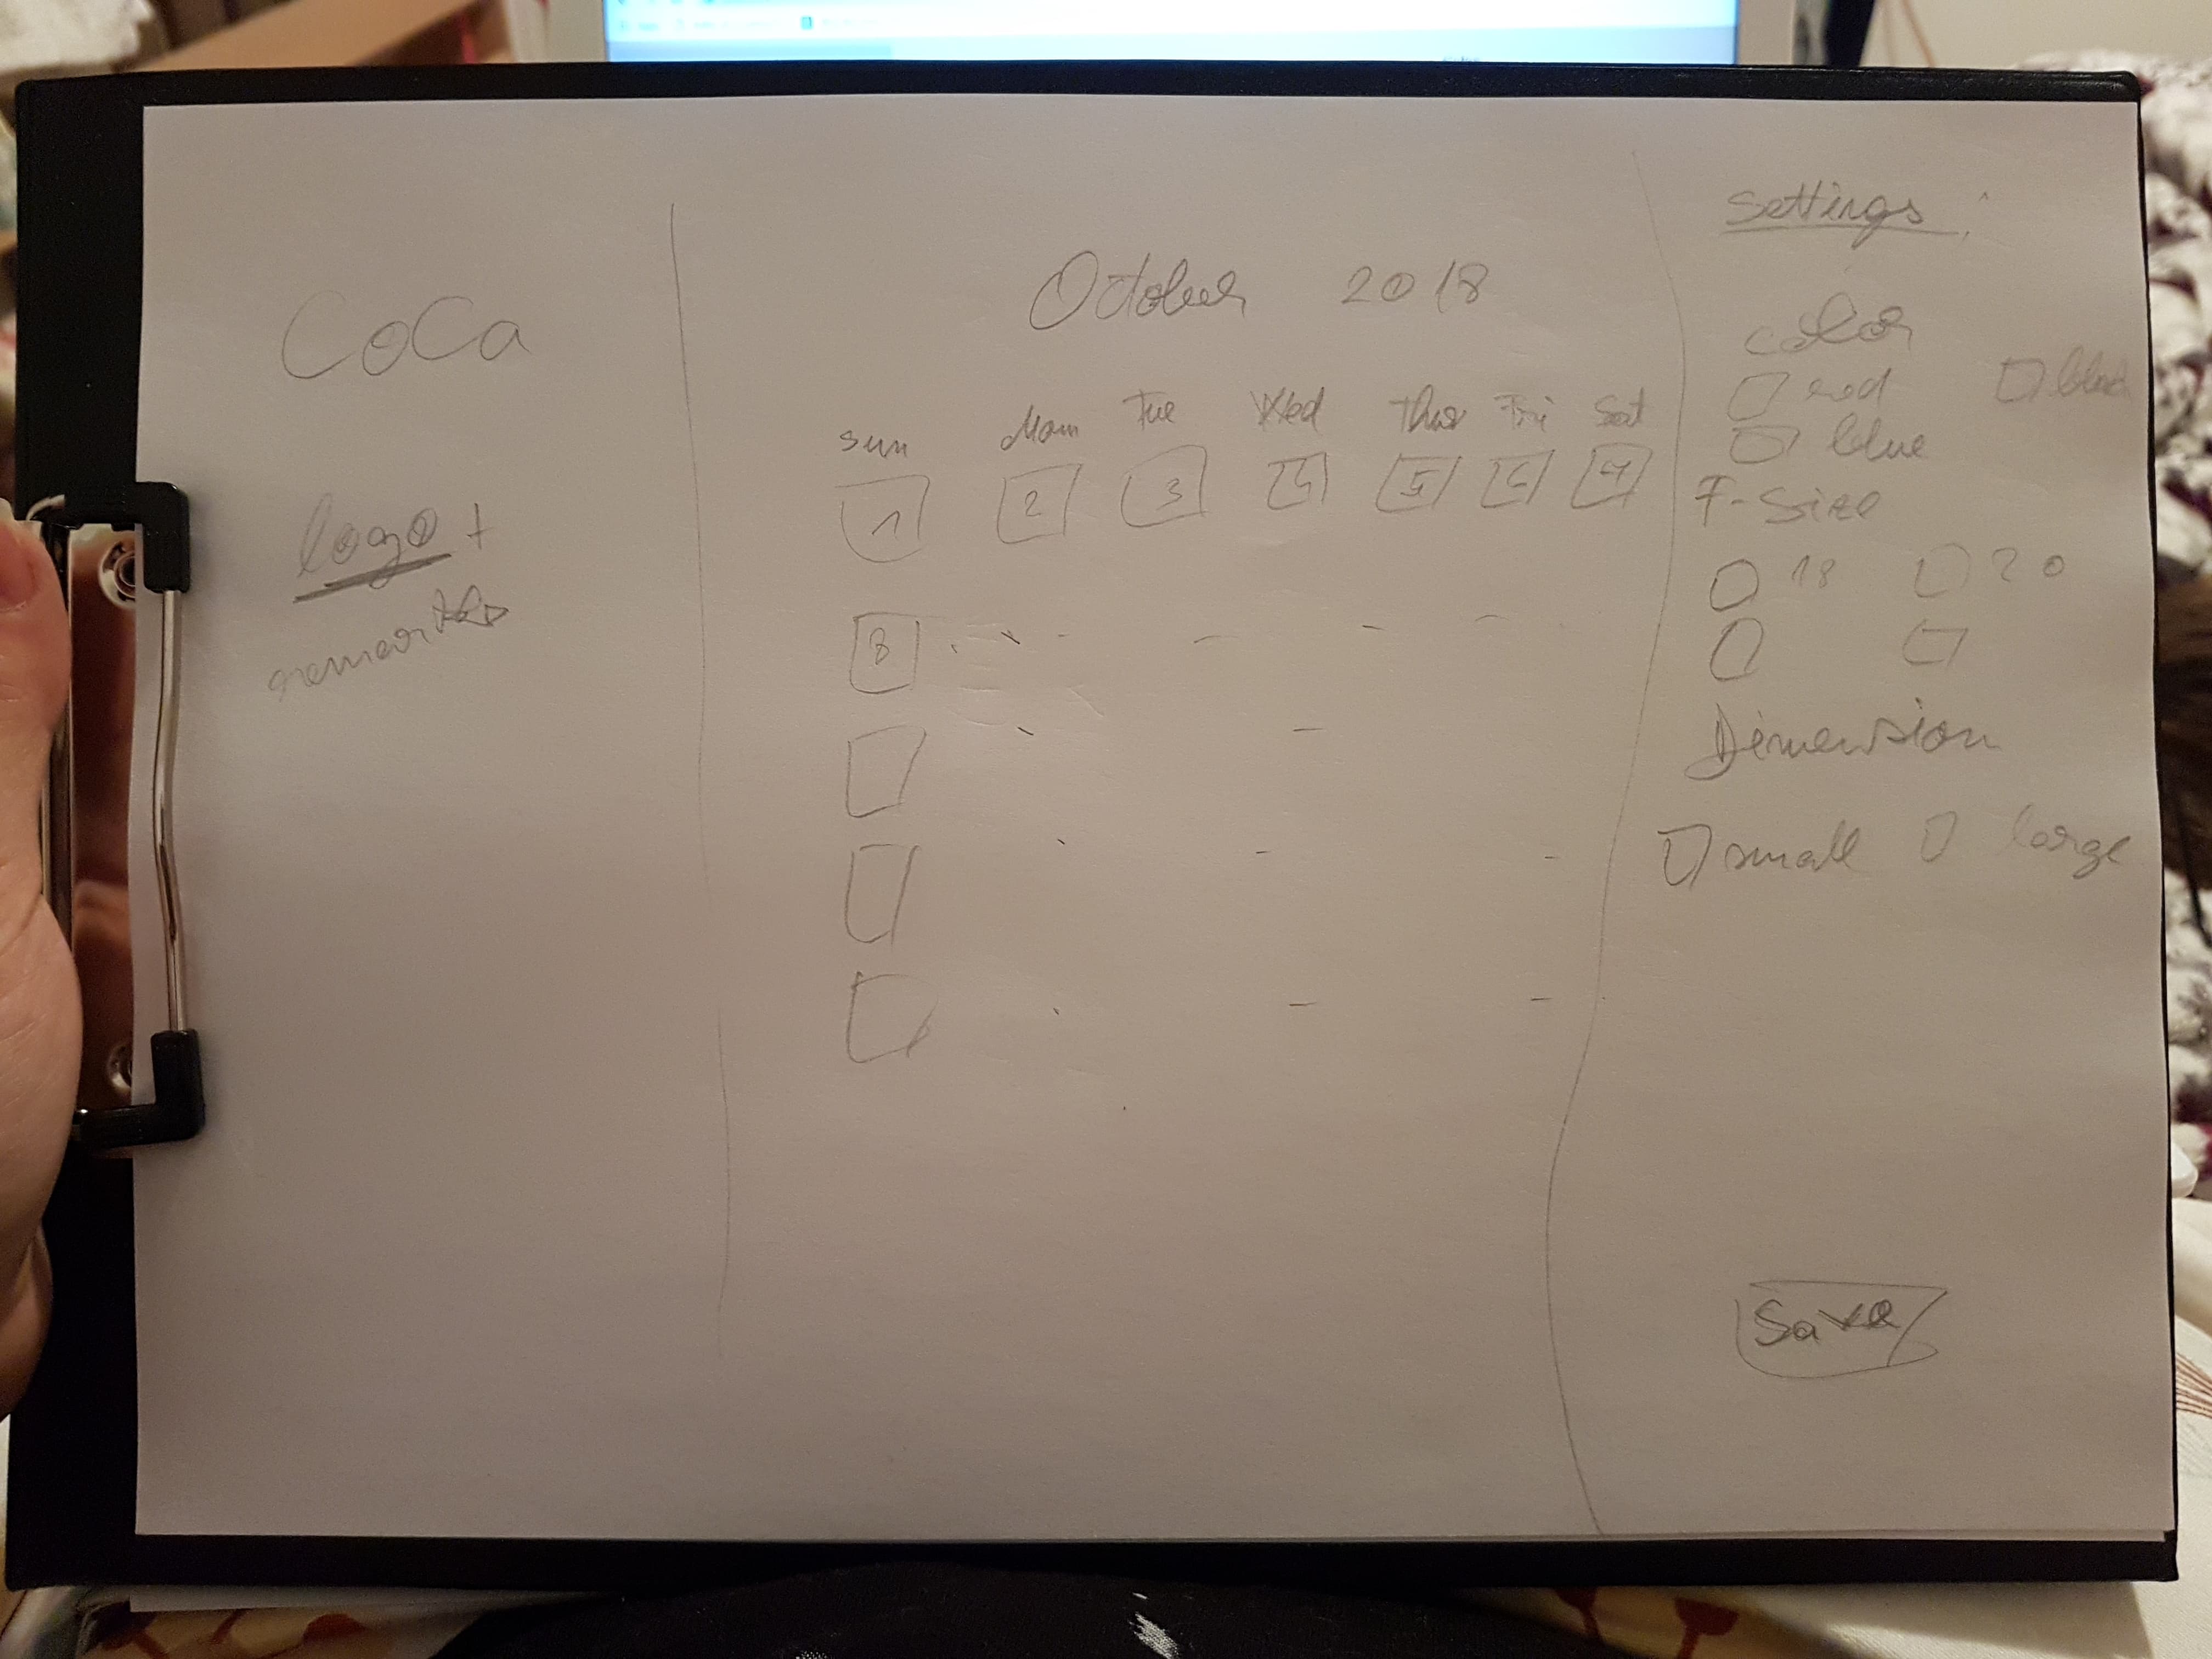 CoCa
logo +
October 2018
Sun Mon Tue Wed Thur Fri Sat
1 2 3 4 5 6 7
8
Settings:
Color
red
blue
F-Size
18 20
Dimension
small large
Save